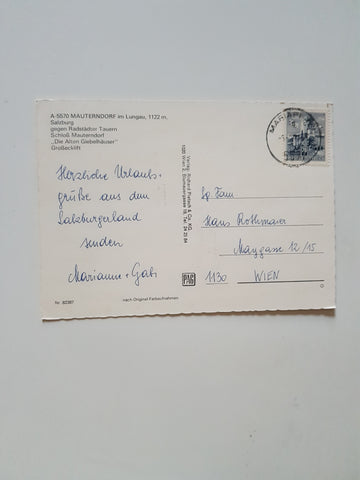 A-5570 MAUTERNDORF im Lungau, 1122 m,
Salzburg
gegen Radstädter Tauern
Schloß Mauterndorf
„Die Alten Giebelhäuser"
Großecklift
Herzliche Urlaubs-
grüße aus dem
Salzburgerland
senden
Marianne + Gabi
Nr. 82387
nach Original-Farbaufnahmen
Verlag: Richard Pietsch & Co. KG.
1020 Wien 2,
PAG
MARIAPFARR
Fam.
Hans Rothmaier
Maygasse 12/15
1130 WIEN